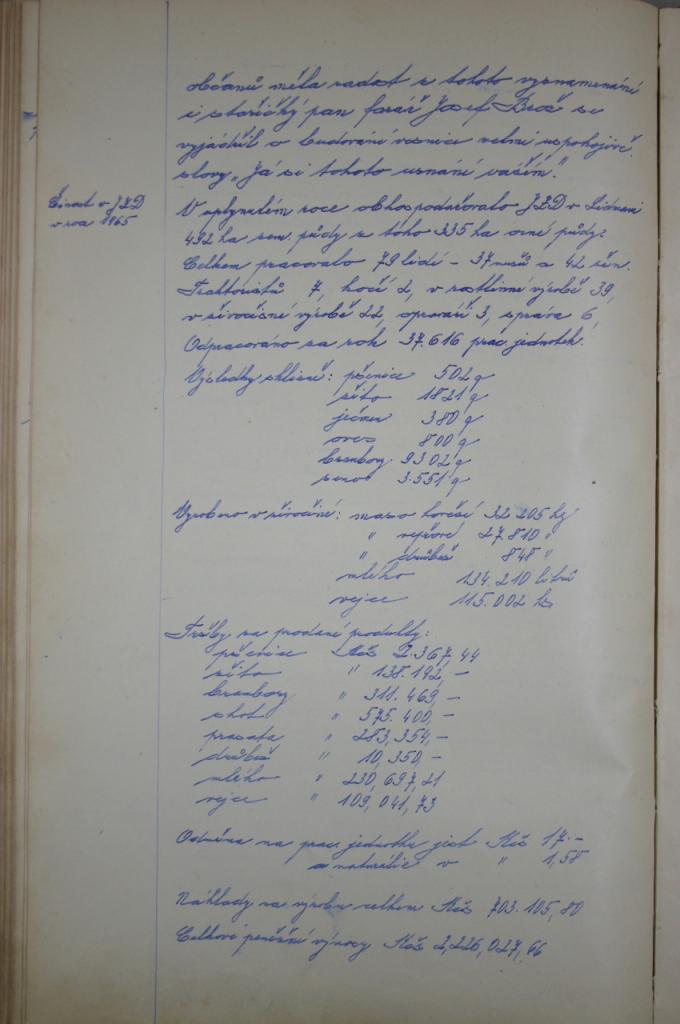 občanů měla radost z tohoto vyznamenání
i stařičký pan farář Josef Brož se
vyjádřil o budování vesnice velmi uspokojivě
slovy „Já si tohoto uznání vážím".
Činnost v JZD
v roce 1965
V uplynulém roce obhospodařovalo JZD v
492 ha zem. půdy z toho 335 ha orné půdy.
Celkem pracovalo 79 lidí – 37 mužů a 42 žen.
Traktoristů 7, kočí 2, v rostlinné výrobě 39,
v živočišné výrobě 22, opraváři 3, správa 6,
Odpracováno za rok 37.616 prac. jednotek.
Výsledky sklizně: pšenice 502 q
žito 1821 q
ječmen 380 q
oves 800 q
brambory 9302 q
seno 3.551 q
Vyrobeno v živočišné: maso hovězí 32 205 kg
" vepřové 27.810 "
" drůbež 848 "
mléko 134.210 litrů
vejce 115.002 ks
Tržby za prodané produkty:
pšenice Kčs 2.367,44
žito " 138.192,–
brambory " 311.469,–
skot " 575.400,–
prasata " 283,354,–
drůbež " 10,350,–
mléko " 230,697,21
vejce " 109,041,73
Odměna na prac. jednotku jest Kčs 17.–
a naturálie v " 1,58
Náklady na výrobu celkem Kčs 703.105,80
Celkové peněžní výnosy Kčs 2,226,027,66